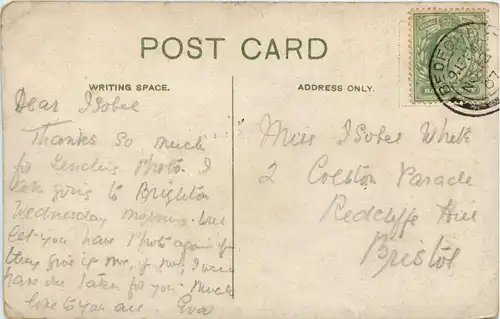 POST CARD
WRITING SPACE.
ADDRESS ONLY.
Dear Isobel
Thanks so much
for sending Photo. I
am going to Brighton
Wednesday morning. Will
let you have Photo again if
they give it me, if not, I will
have one taken for you. Much
love to you all Eva
Miss Isobel White
2 Colston Parade
Redcliffe Hill
Bristol
BEDFORD